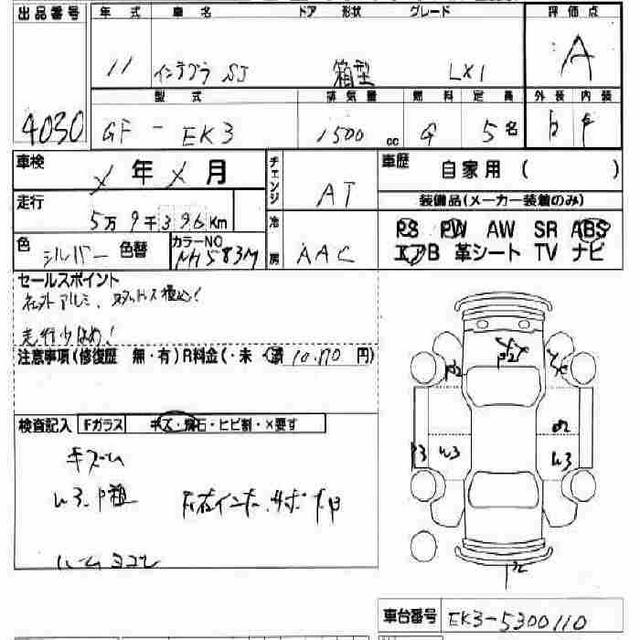 出品番号 年式 車名 ドア 形状 グレード 評価点
4030 11 インテグラ SJ 箱型 LXi A
型式 排気量 燃料 定員 外装 内装
GF - EK3 1500cc G 5名
車検 X年X月 チェンジ AT 車歴 自家用( )
走行 5万9千396Km 装備品(メーカー装着のみ)
色 シルバー 色替 カラーNO NH583M 冷房 AAC PS PW AW SR ABS
エアB 革シート TV ナビ
セールスポイント
社外アルミ、スタッドレス積込!
走行少なめ!
注意事項(修復歴 無・有)R料金(・未・済 10.170円)
検査記入 Fガラス キズ・飛石・ヒビ割・×要す
キズ
W3
ルームヨゴレ
W3 W3
車台番号 EK3-5300110